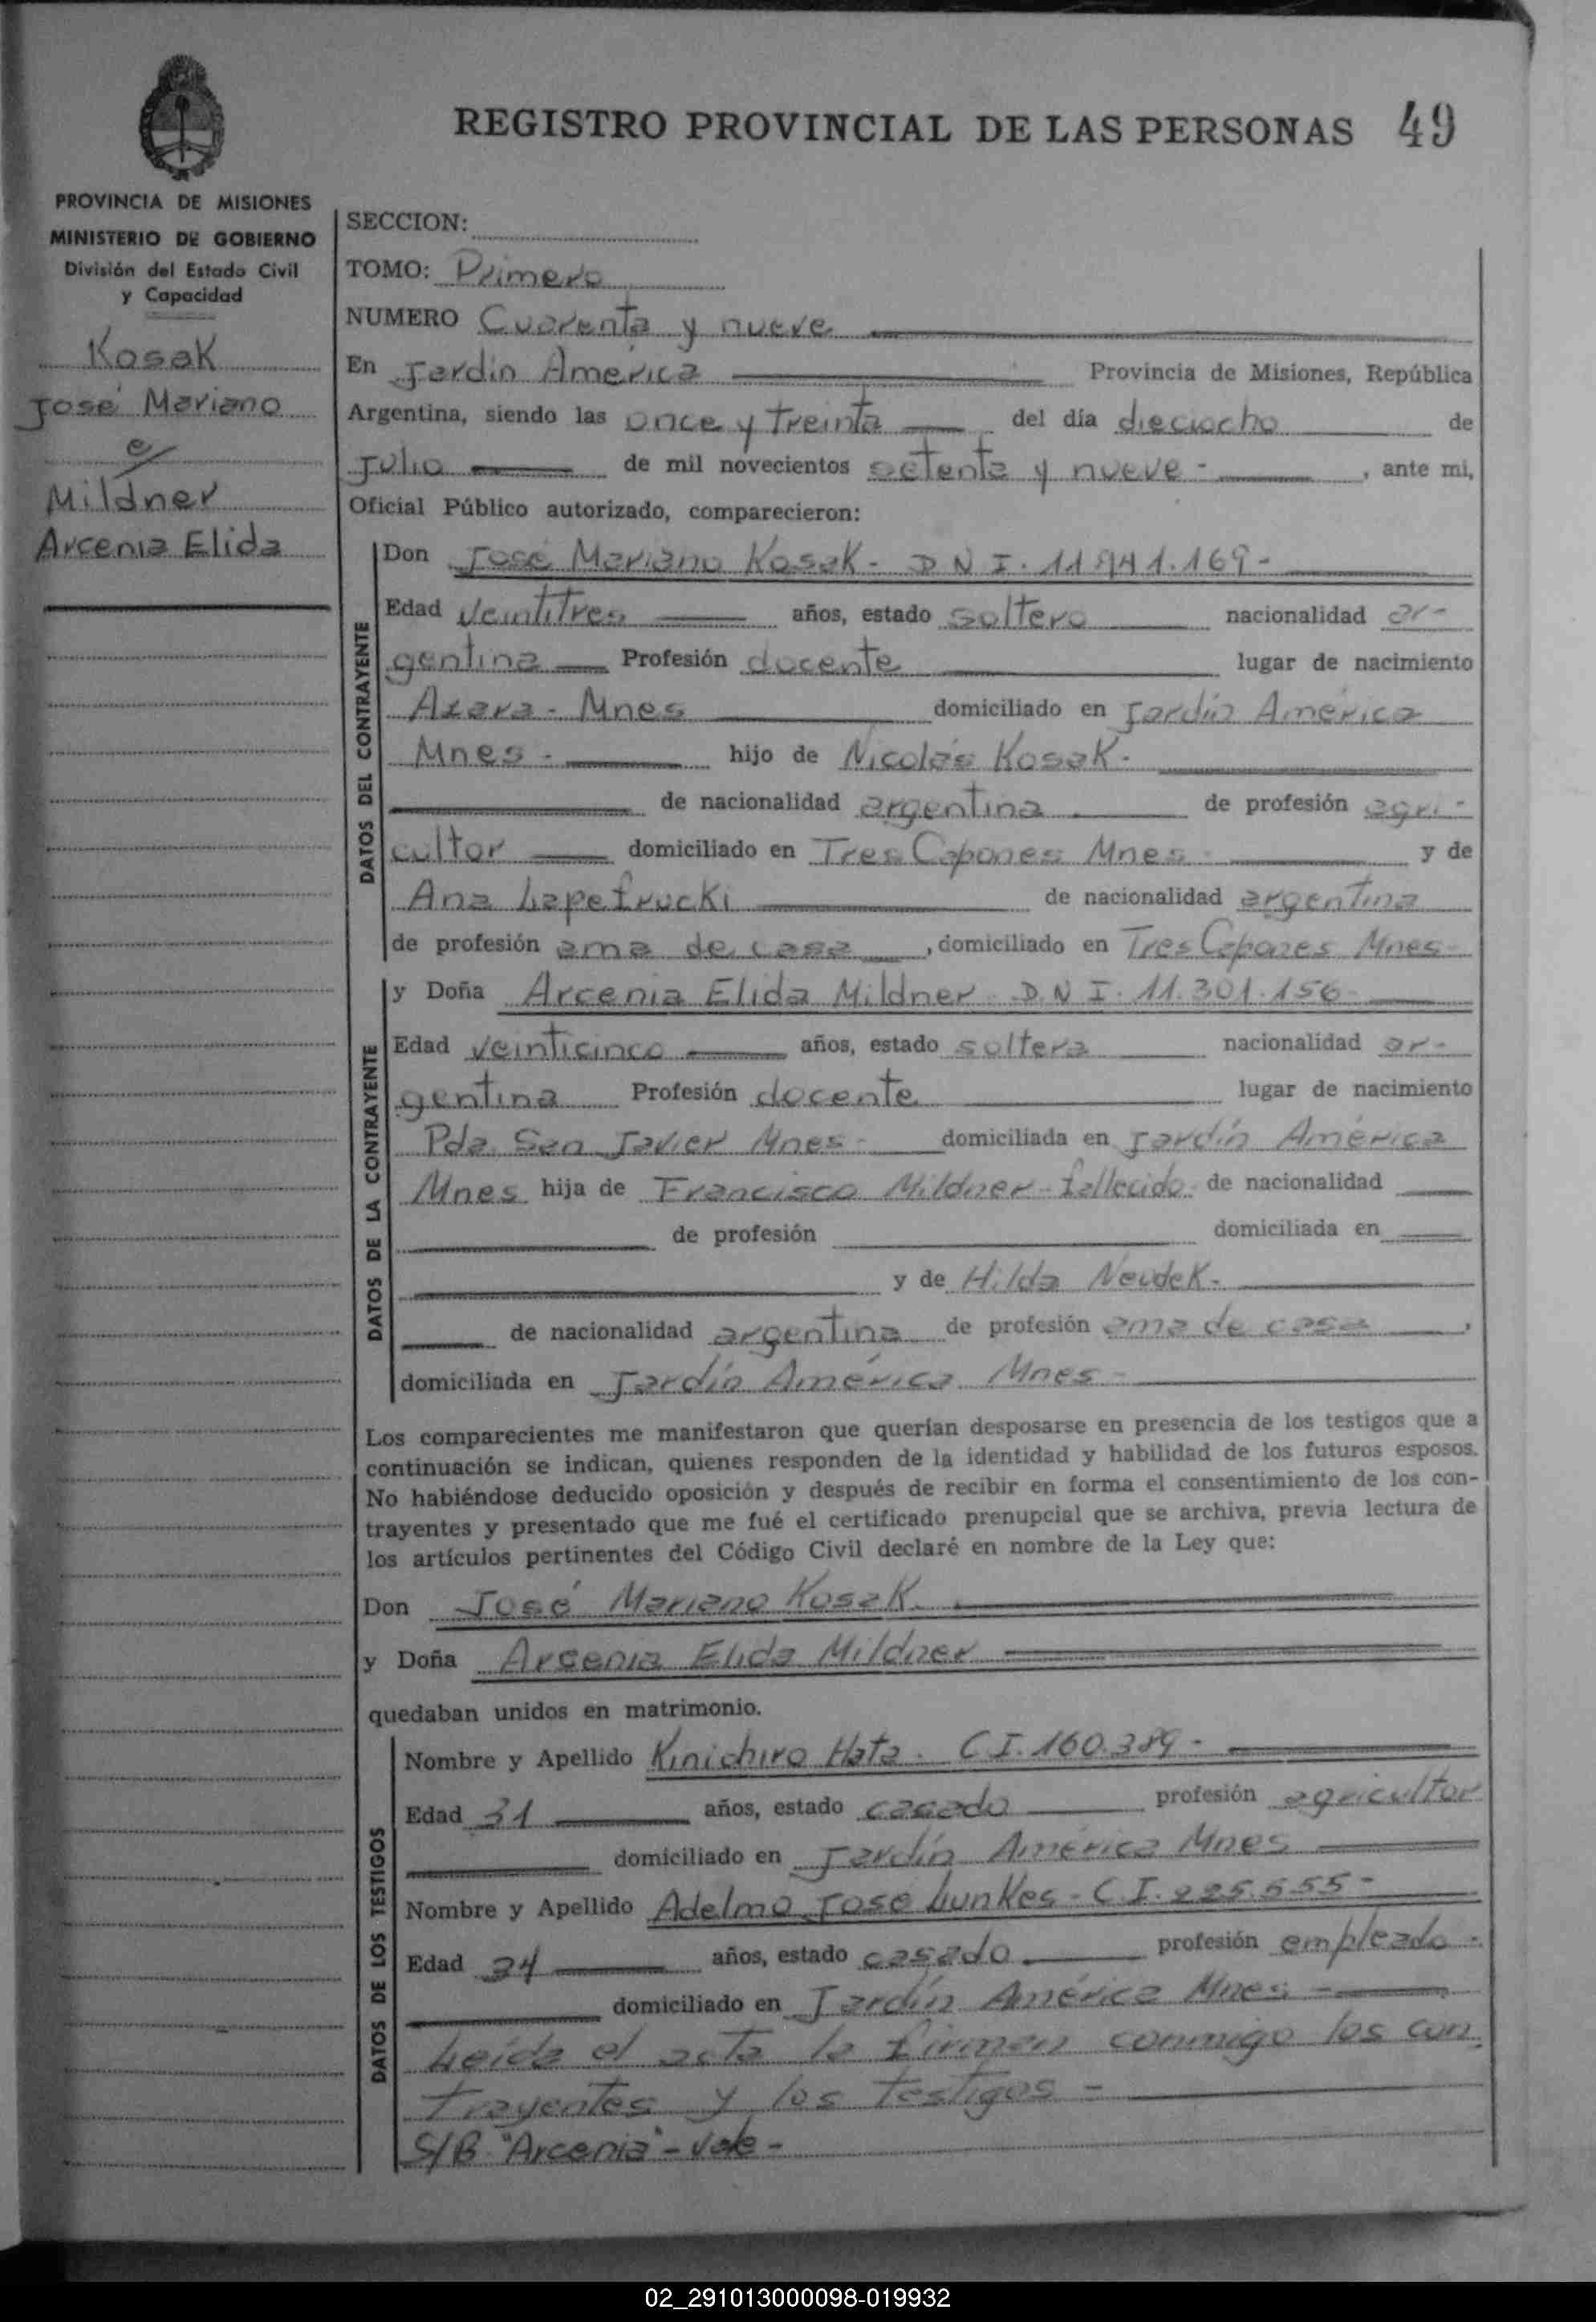 REGISTRO PROVINCIAL DE LAS PERSONAS 49
PROVINCIA DE MISIONES
MINISTERIO DE GOBIERNO
División del Estado Civil
y Capacidad
Kosak
José Mariano
c/
Mildner
Arcenia Elida
SECCION:
TOMO: Primero
NUMERO Cuarenta y nueve
En Jardín América Provincia de Misiones, República
Argentina, siendo las once y treinta del día dieciocho de
julio de mil novecientos setenta y nueve - , ante mi,
Oficial Público autorizado, comparecieron:
DATOS DEL CONTRAYENTE
Don José Mariano Kosak - D N I. 11.941.169 -
Edad veintitres años, estado soltero nacionalidad ar-
gentina Profesión docente lugar de nacimiento
Azara - Mnes domiciliado en Jardín América
Mnes - hijo de Nicolás Kosak -
de nacionalidad argentina de profesión agri-
cultor domiciliado en Tres Capones Mnes y de
Ana de nacionalidad argentina
de profesión ama de casa , domiciliado en Tres Capones Mnes -
DATOS DE LA CONTRAYENTE
y Doña Arcenia Elida Mildner D.N I. 11.301.156
Edad veinticinco años, estado soltera nacionalidad ar-
gentina Profesión docente lugar de nacimiento
Pda. San Javier Mnes - domiciliada en Jardín América
Mnes hija de Francisco Mildner - fallecido - de nacionalidad
de profesión domiciliada en
y de Hilda Neudek -
de nacionalidad argentina de profesión ama de casa ,
domiciliada en Jardín América Mnes -
Los comparecientes me manifestaron que querían desposarse en presencia de los testigos que a
continuación se indican, quienes responden de la identidad y habilidad de los futuros esposos.
No habiéndose deducido oposición y después de recibir en forma el consentimiento de los con-
trayentes y presentado que me fué el certificado prenupcial que se archiva, previa lectura de
los artículos pertinentes del Código Civil declaré en nombre de la Ley que:
Don José Mariano Kosak
y Doña Arcenia Elida Mildner
quedaban unidos en matrimonio.
DATOS DE LOS TESTIGOS
Nombre y Apellido Kinichiro Hata - C I. 160.389 -
Edad 31 años, estado casado profesión agricultor
domiciliado en Jardín América Mnes
Nombre y Apellido Adelmo José Lunkes - C.I. 225.555 -
Edad 34 años, estado casado profesión empleado -
domiciliado en Jardín América Mnes -
Leída el acta la firman conmigo los con
trayentes y los testigos -
S/B "Arcenia" - vale -
02_291013000098-019932